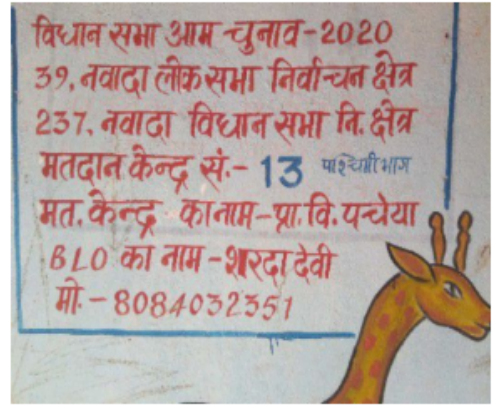 विधान सभा आम चुनाव-2020
39, नवादा लोक सभा निर्वाचन क्षेत्र
237, नवादा विधान सभा नि. क्षेत्र
मतदान केन्द्र सं.- 13 पश्चिमी भाग
मत. केन्द्र का नाम-प्रा. वि. पचेया
BLO का नाम - शारदा देवी
मो. - 8084032351